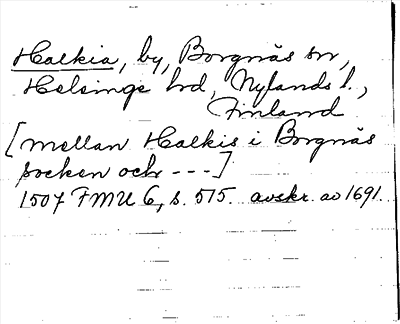 Halkia, by, Borgnäs sn,
Helsinge hd, Nylands l.,
Finland
[mellan Halkis i Borgnäs
socken och ---]
1507 FMU 6, s. 515. avskr. av 1691.